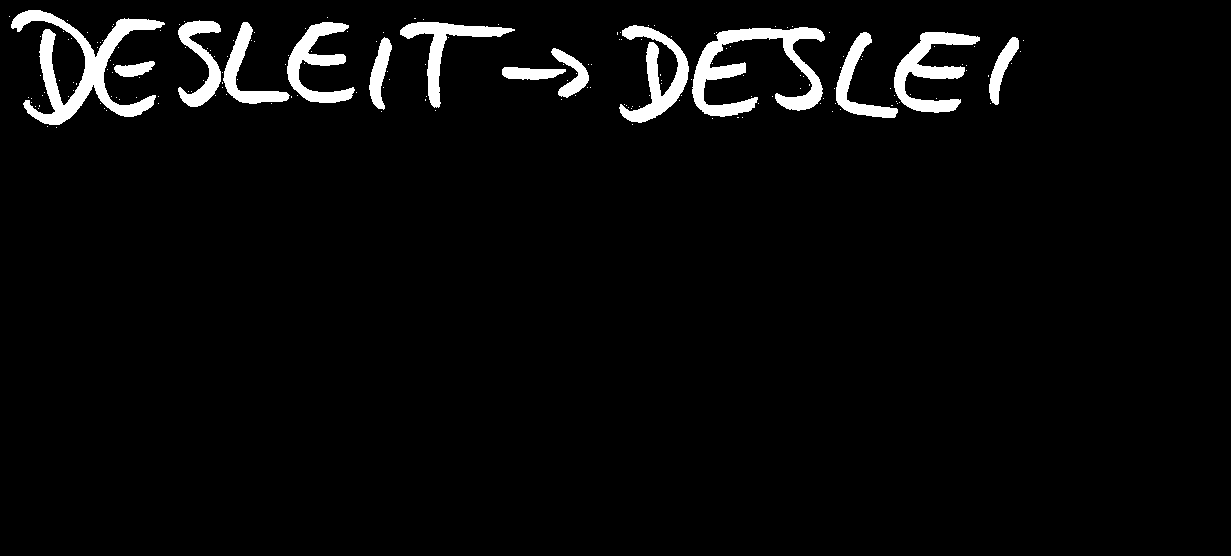 DESLEIT → DESLEI